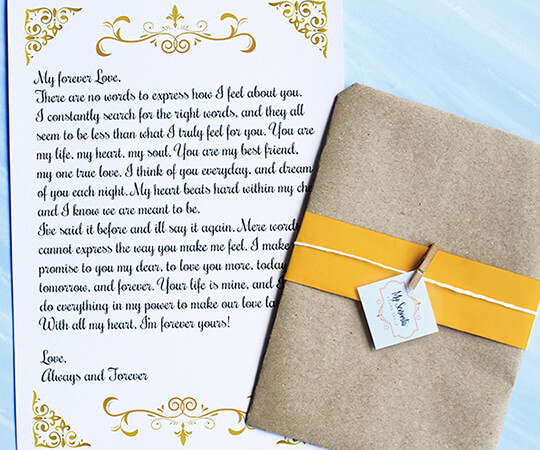 My forever Love,
There are no words to express how I feel about you.
I constantly search for the right words, and they all
seem to be less than what I truly feel for you. You are
my life, my heart, my soul. You are my best friend,
my one true love. I think of you everyday, and dream
of you each night. My heart beats hard within my che
and I know we are meant to be.
I've said it before and ill say it again. Mere word
cannot express the way you make me feel. I make
promise to you my dear, to love you more, today
tomorrow, and forever. Your life is mine, and I
do everything in my power to make our love la
With all my heart, I'm forever yours!
Love,
Always and Forever
My